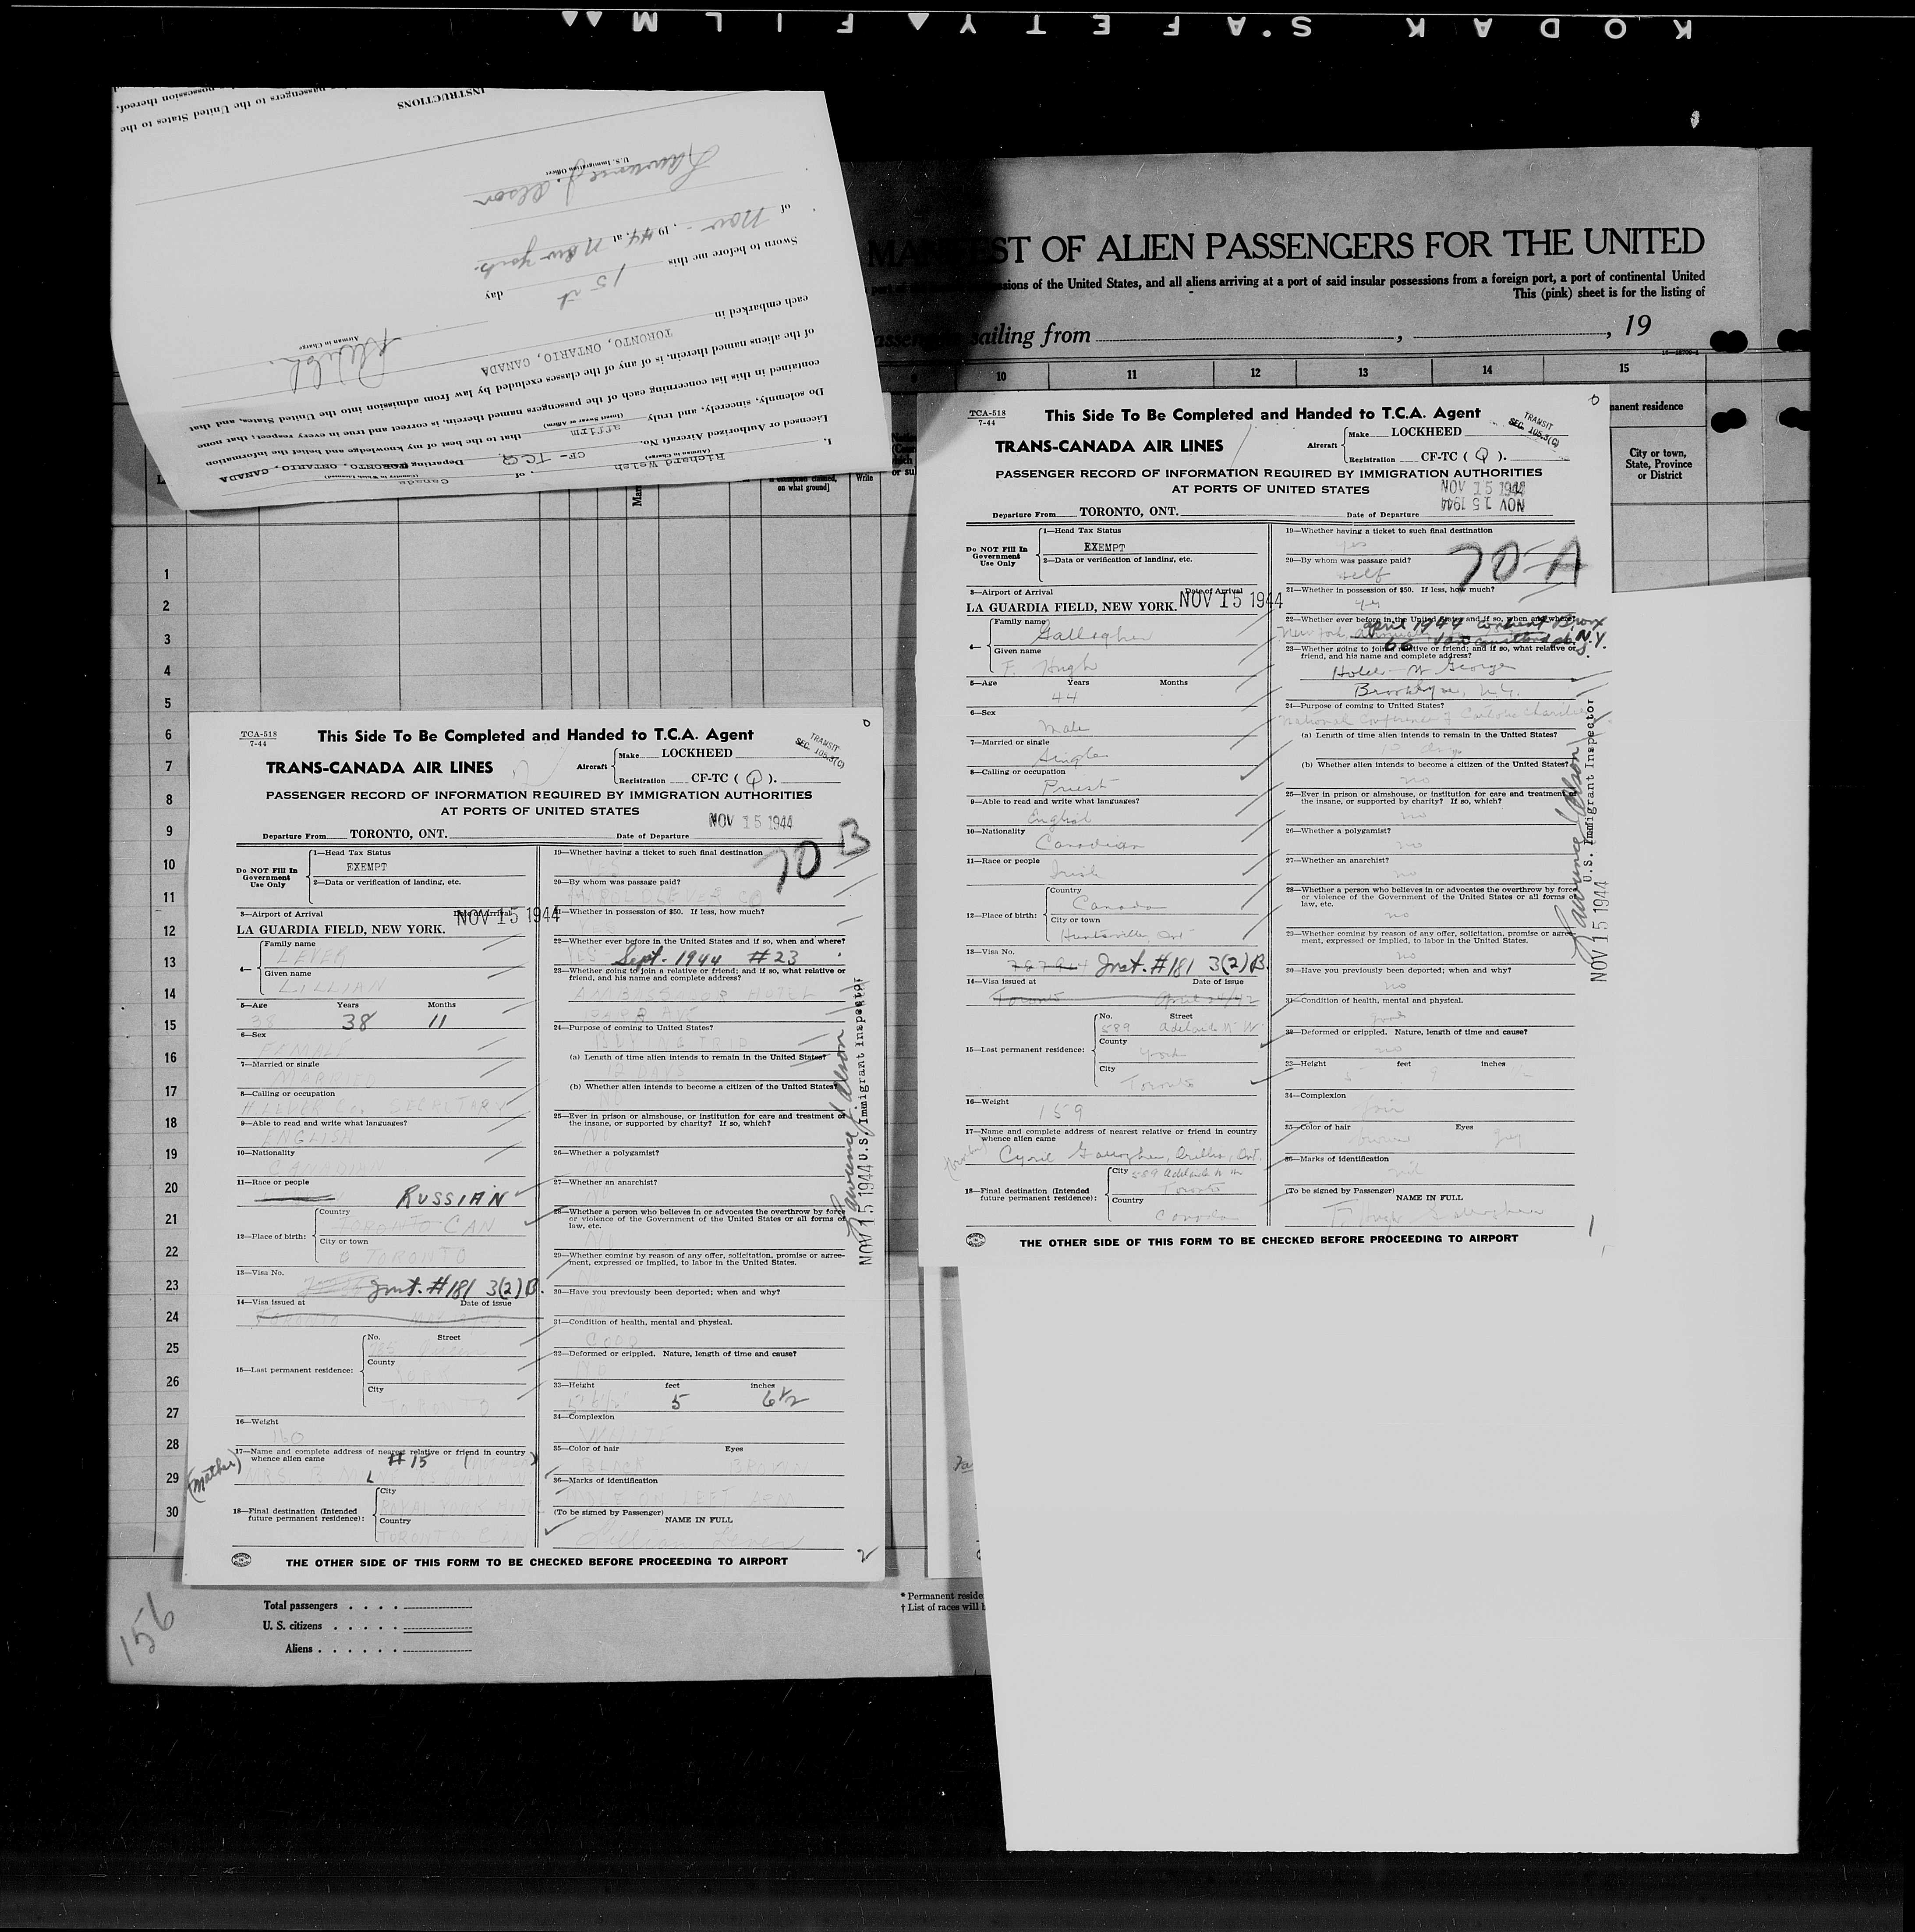 KODAK SAFETY FILM
INSTRUCTIONS
Lawrence J. Olson
U.S. Immigration Officer
Sworn to before me this 15 day
of Nov - , 1944, at New York.
each embarked in TORONTO, ONTARIO, CANADA
Airman in Charge
I, Richard Welsh, of Canada
(Airman in Charge)
Licensed or Authorized Aircraft No. CF-TCQ Departing TORONTO, ONTARIO, CANADA
Do solemnly, sincerely, and truly affirm that to the best of my knowledge and belief the information
contained in this list concerning each of the passengers named therein, is correct and true in every respect; that none
of the aliens named therein, is of any of the classes excluded by law from admission into the United States, and that
ST OF ALIEN PASSENGERS FOR THE UNITED
sions of the United States, and all aliens arriving at a port of said insular possessions from a foreign port, a port of continental United
This (pink) sheet is for the listing of
sailing from , , 19
10 11 12 13 14 15
manent residence
City or town,
State, Province
or District
on what ground]
Write
1
2
3
4
5
6
7
8
9
10
11
12
13
14
15
16
17
18
19
20
21
22
23
24
25
26
27
28
29
30
TCA-518
7-44
This Side To Be Completed and Handed to T.C.A. Agent
TRANSIT
SEC. 105.3(C)
TRANS-CANADA AIR LINES
Aircraft
Make LOCKHEED
Registration CF-TC ( Q ).
PASSENGER RECORD OF INFORMATION REQUIRED BY IMMIGRATION AUTHORITIES
AT PORTS OF UNITED STATES
NOV 15 1944
Departure From TORONTO, ONT. Date of Departure
70 B
Do NOT Fill In
Government
Use Only
1—Head Tax Status
EXEMPT
2—Data or verification of landing, etc.
3—Airport of Arrival Date of Arrival
LA GUARDIA FIELD, NEW YORK. NOV 15 1944
4—
Family name
LEVER
Given name
LILLIAN
5—Age Years Months
38 38 11
6—Sex
FEMALE
7—Married or single
MARRIED
8—Calling or occupation
H LEVER Co. SECRETARY
9—Able to read and write what languages?
ENGLISH
10—Nationality
CANADIAN
11—Race or people
RUSSIAN
12—Place of birth:
Country
TORONTO CAN
City or town
TORONTO
13—Visa No.
Inst. #181 3(2)B.
14—Visa issued at Date of issue
TORONTO
15—Last permanent residence:
No. Street
785 Queen
County
YORK
City
TORONTO
16—Weight
160
17—Name and complete address of nearest relative or friend in country
whence alien came
#15
(Mother)
MRS. B
18—Final destination (Intended
future permanent residence):
City
ROYAL YORK HOTEL
Country
TORONTO CAN
19—Whether having a ticket to such final destination
YES
20—By whom was passage paid?
HAROLD LEVER CO
21—Whether in possession of $50. If less, how much?
YES
22—Whether ever before in the United States and if so, when and where?
YES Sept. 1944 #23
23—Whether going to join a relative or friend; and if so, what relative or
friend, and his name and complete address?
AMBASSADOR HOTEL
24—Purpose of coming to United States?
BUYING TRIP
(a) Length of time alien intends to remain in the United States?
12 DAYS
(b) Whether alien intends to become a citizen of the United States?
NO
25—Ever in prison or almshouse, or institution for care and treatment of
the insane, or supported by charity? If so, which?
NO
26—Whether a polygamist?
NO
27—Whether an anarchist?
NO
28—Whether a person who believes in or advocates the overthrow by force
or violence of the Government of the United States or all forms of
law, etc.
NO
29—Whether coming by reason of any offer, solicitation, promise or agree-
ment, expressed or implied, to labor in the United States.
30—Have you previously been deported; when and why?
31—Condition of health, mental and physical.
GOOD
32—Deformed or crippled. Nature, length of time and cause?
NO
33—Height feet inches
5 6½
34—Complexion
WHITE
35—Color of hair Eyes
BLACK BROWN
36—Marks of identification
LEFT ARM
(To be signed by Passenger)
NAME IN FULL
Lillian Lever
THE OTHER SIDE OF THIS FORM TO BE CHECKED BEFORE PROCEEDING TO AIRPORT
2
Lawrence J. Olson
NOV 15 1944 U.S. Immigrant Inspector
TCA-518
7-44
This Side To Be Completed and Handed to T.C.A. Agent
TRANSIT
SEC. 105.3(C)
TRANS-CANADA AIR LINES
Aircraft
Make LOCKHEED
Registration CF-TC ( Q ).
PASSENGER RECORD OF INFORMATION REQUIRED BY IMMIGRATION AUTHORITIES
AT PORTS OF UNITED STATES
NOV 15 1944
NOV 15 1944
Departure From TORONTO, ONT. Date of Departure
70-A
Do NOT Fill In
Government
Use Only
1—Head Tax Status
EXEMPT
2—Data or verification of landing, etc.
3—Airport of Arrival Date of Arrival
LA GUARDIA FIELD, NEW YORK. NOV 15 1944
4—
Family name
Gallagher
Given name
F. Hugh
5—Age Years Months
44
6—Sex
Male
7—Married or single
Single
8—Calling or occupation
Priest
9—Able to read and write what languages?
English
10—Nationality
Canadian
11—Race or people
Irish
12—Place of birth:
Country
Canada
City or town
Huntsville, Ont
13—Visa No.
Inst. #181 3(2)B.
14—Visa issued at Date of issue
Toronto April 24/42
15—Last permanent residence:
No. Street
589 Adelaide St W.
County
York
City
Toronto
16—Weight
159
17—Name and complete address of nearest relative or friend in country
whence alien came
(brother)
Cyril Gallagher, Orillia, Ont.
18—Final destination (Intended
future permanent residence):
City 589 Adelaide St W
Toronto
Country
Canada
19—Whether having a ticket to such final destination
yes
20—By whom was passage paid?
self
21—Whether in possession of $50. If less, how much?
yes
22—Whether ever before in the United States and if so, when and where?
New York April 1944 Bronx
66 Van Cortland N.Y.
23—Whether going to join a relative or friend; and if so, what relative or
friend, and his name and complete address?
Hotel St George
Brooklyn, N.Y.
24—Purpose of coming to United States?
National Conference of Catholic Charities
(a) Length of time alien intends to remain in the United States?
10 days
(b) Whether alien intends to become a citizen of the United States?
no
25—Ever in prison or almshouse, or institution for care and treatment of
the insane, or supported by charity? If so, which?
no
26—Whether a polygamist?
no
27—Whether an anarchist?
no
28—Whether a person who believes in or advocates the overthrow by force
or violence of the Government of the United States or all forms of
law, etc.
no
29—Whether coming by reason of any offer, solicitation, promise or agree-
ment, expressed or implied, to labor in the United States.
no
30—Have you previously been deported; when and why?
no
31—Condition of health, mental and physical.
good
32—Deformed or crippled. Nature, length of time and cause?
no
33—Height feet inches
5 9
34—Complexion
fair
35—Color of hair Eyes
brown grey
36—Marks of identification
nil
(To be signed by Passenger)
NAME IN FULL
F. Hugh Gallagher
THE OTHER SIDE OF THIS FORM TO BE CHECKED BEFORE PROCEEDING TO AIRPORT
1
Lawrence J. Olson
NOV 15 1944 U.S. Immigrant Inspector
Total passengers
U. S. citizens
Aliens
156
* Permanent reside
† List of races will b